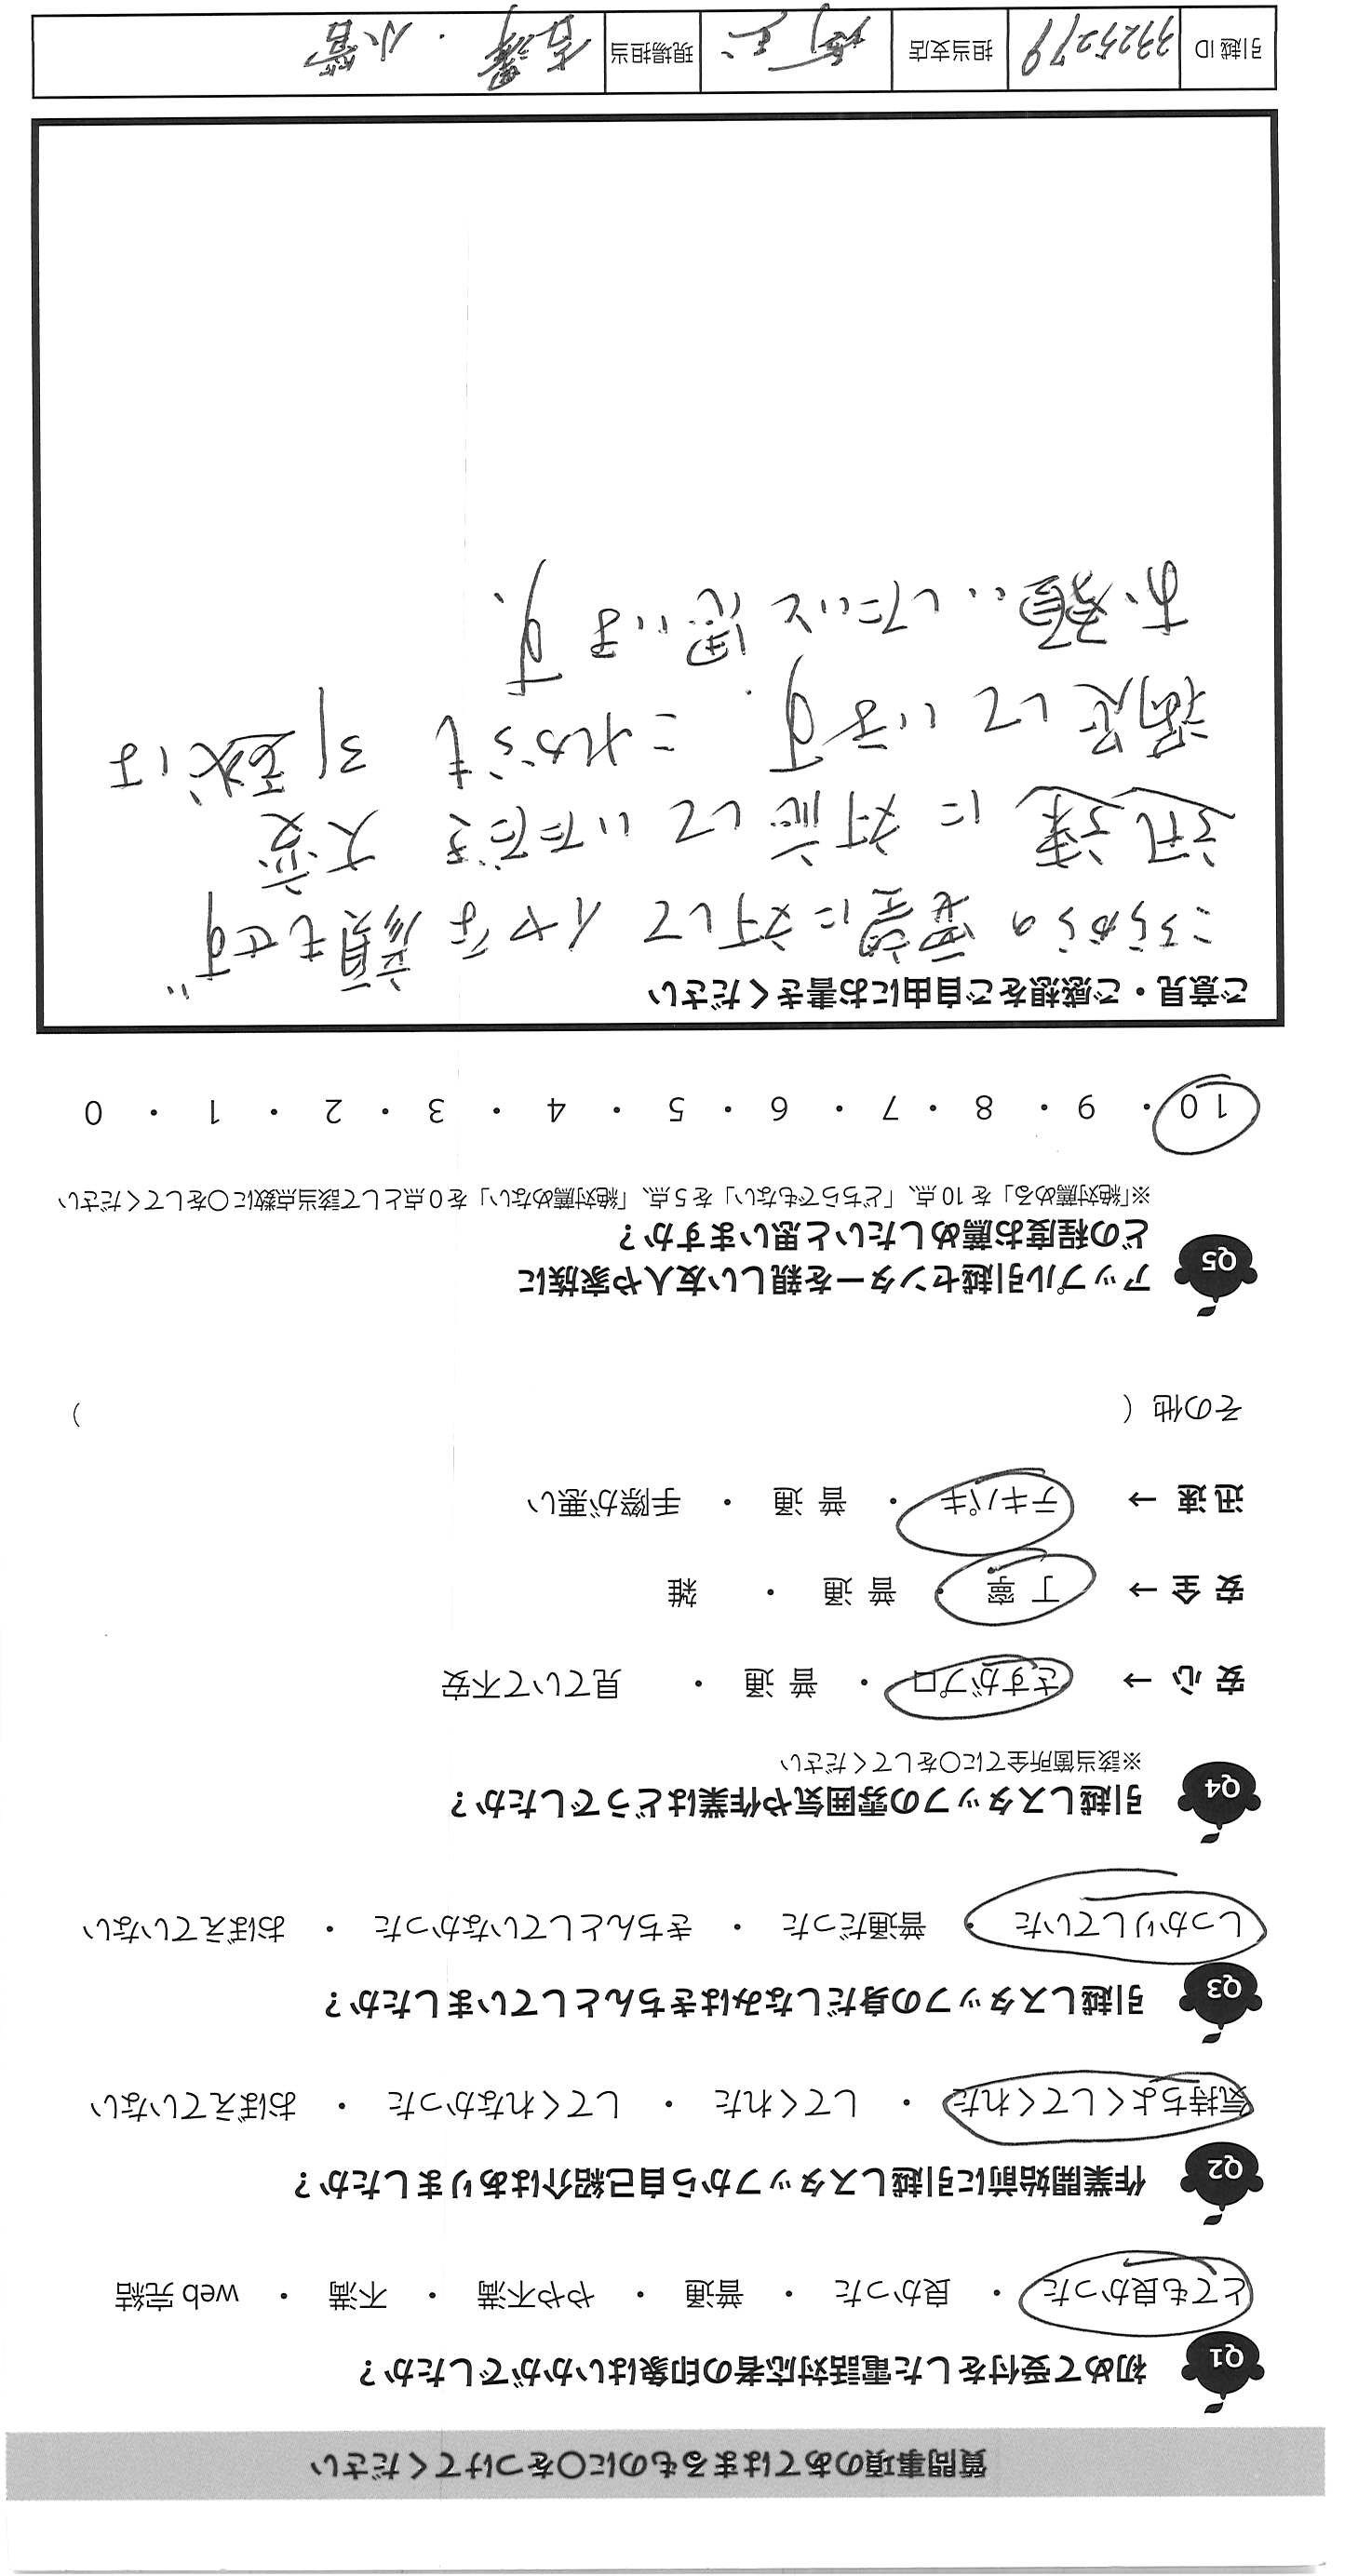 質問事項のあてはまるものに〇をつけてください
Q1 初めて受付をした電話対応者の印象はいかがでしたか？
とても良かった ・ 良かった ・ 普通 ・ やや不満 ・ 不満 ・ web 完結
Q2 作業開始前に引越しスタッフから自己紹介はありましたか？
気持ちよくしてくれた ・ してくれた ・ してくれなかった ・ おぼえていない
Q3 引越しスタッフの身だしなみはきちんとしていましたか？
しっかりしていた ・ 普通だった ・ きちんとしていなかった ・ おぼえていない
Q4 引越しスタッフの雰囲気や作業はどうでしたか？
※該当箇所全てに〇をしてください
安 心 → さすがプロ ・ 普 通 ・ 見ていて不安
安 全 → 丁 寧 ・ 普 通 ・ 雑
迅 速 → テキパキ ・ 普 通 ・ 手際が悪い
その他（ ）
Q5 アップル引越センターを親しい友人や家族に
どの程度お薦めしたいと思いますか？
※「絶対薦める」を 10 点、「どちらでもない」を 5 点、「絶対薦めない」を 0 点として該当点数に〇をしてください
10 ・ 9 ・ 8 ・ 7 ・ 6 ・ 5 ・ 4 ・ 3 ・ 2 ・ 1 ・ 0
ご意見・ご感想をご自由にお書きください
こちらの要望に対して イヤな顔もせず
迅速に対応していただき 大変
満足しています。これからも 引越は
お願いしたいと思います。
引越 ID 3325279 担当支店 埼玉 現場担当 ・ 小菅